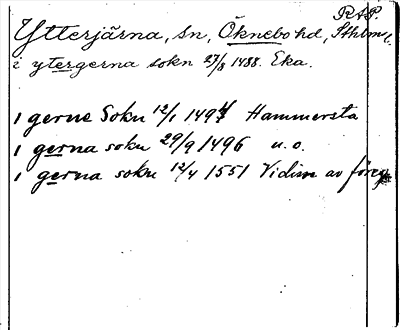 RAP.
Ytterjärna, sn, Öknebo hd, Sthlms l.
i ytergerna sokn 27/8 1488. Eka.
i gerne Sokn 12/1 1494 Hammersta
i gerna sokn 29/9 1496 u. o.
i gerna sokn 12/4 1551 Vidim av föreg.